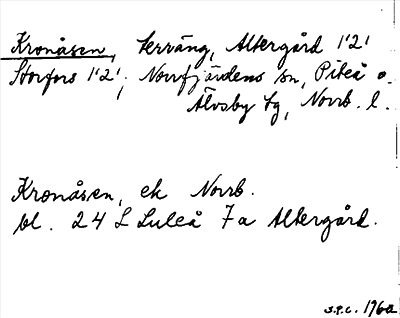 Kronåsen, terräng, Altergård 1'2'
Storfors 1'2', Norrfjärdens sn, Piteå o.
Älvsby tg, Norrb. l.
Kronåsen, ek Norrb.
bl. 24 L Luleå 7a Altergård.
S.P.C. 1960